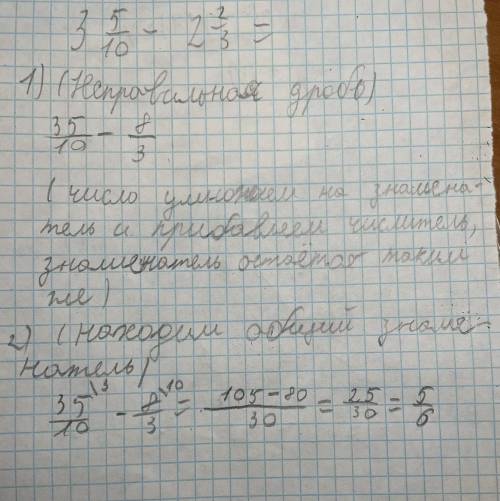 3 5/10 - 2 2/3 =
1) (Неправильная дробь)
35/10 - 8/3
(число умножаем на знамена-
тель и прибавляем числитель,
знаменатель остаётся таким
же)
2) (находим общий знаме-
натель)
35/10 \3 - 8/3 \10 = 105-80/30 = 25/30 = 5/6